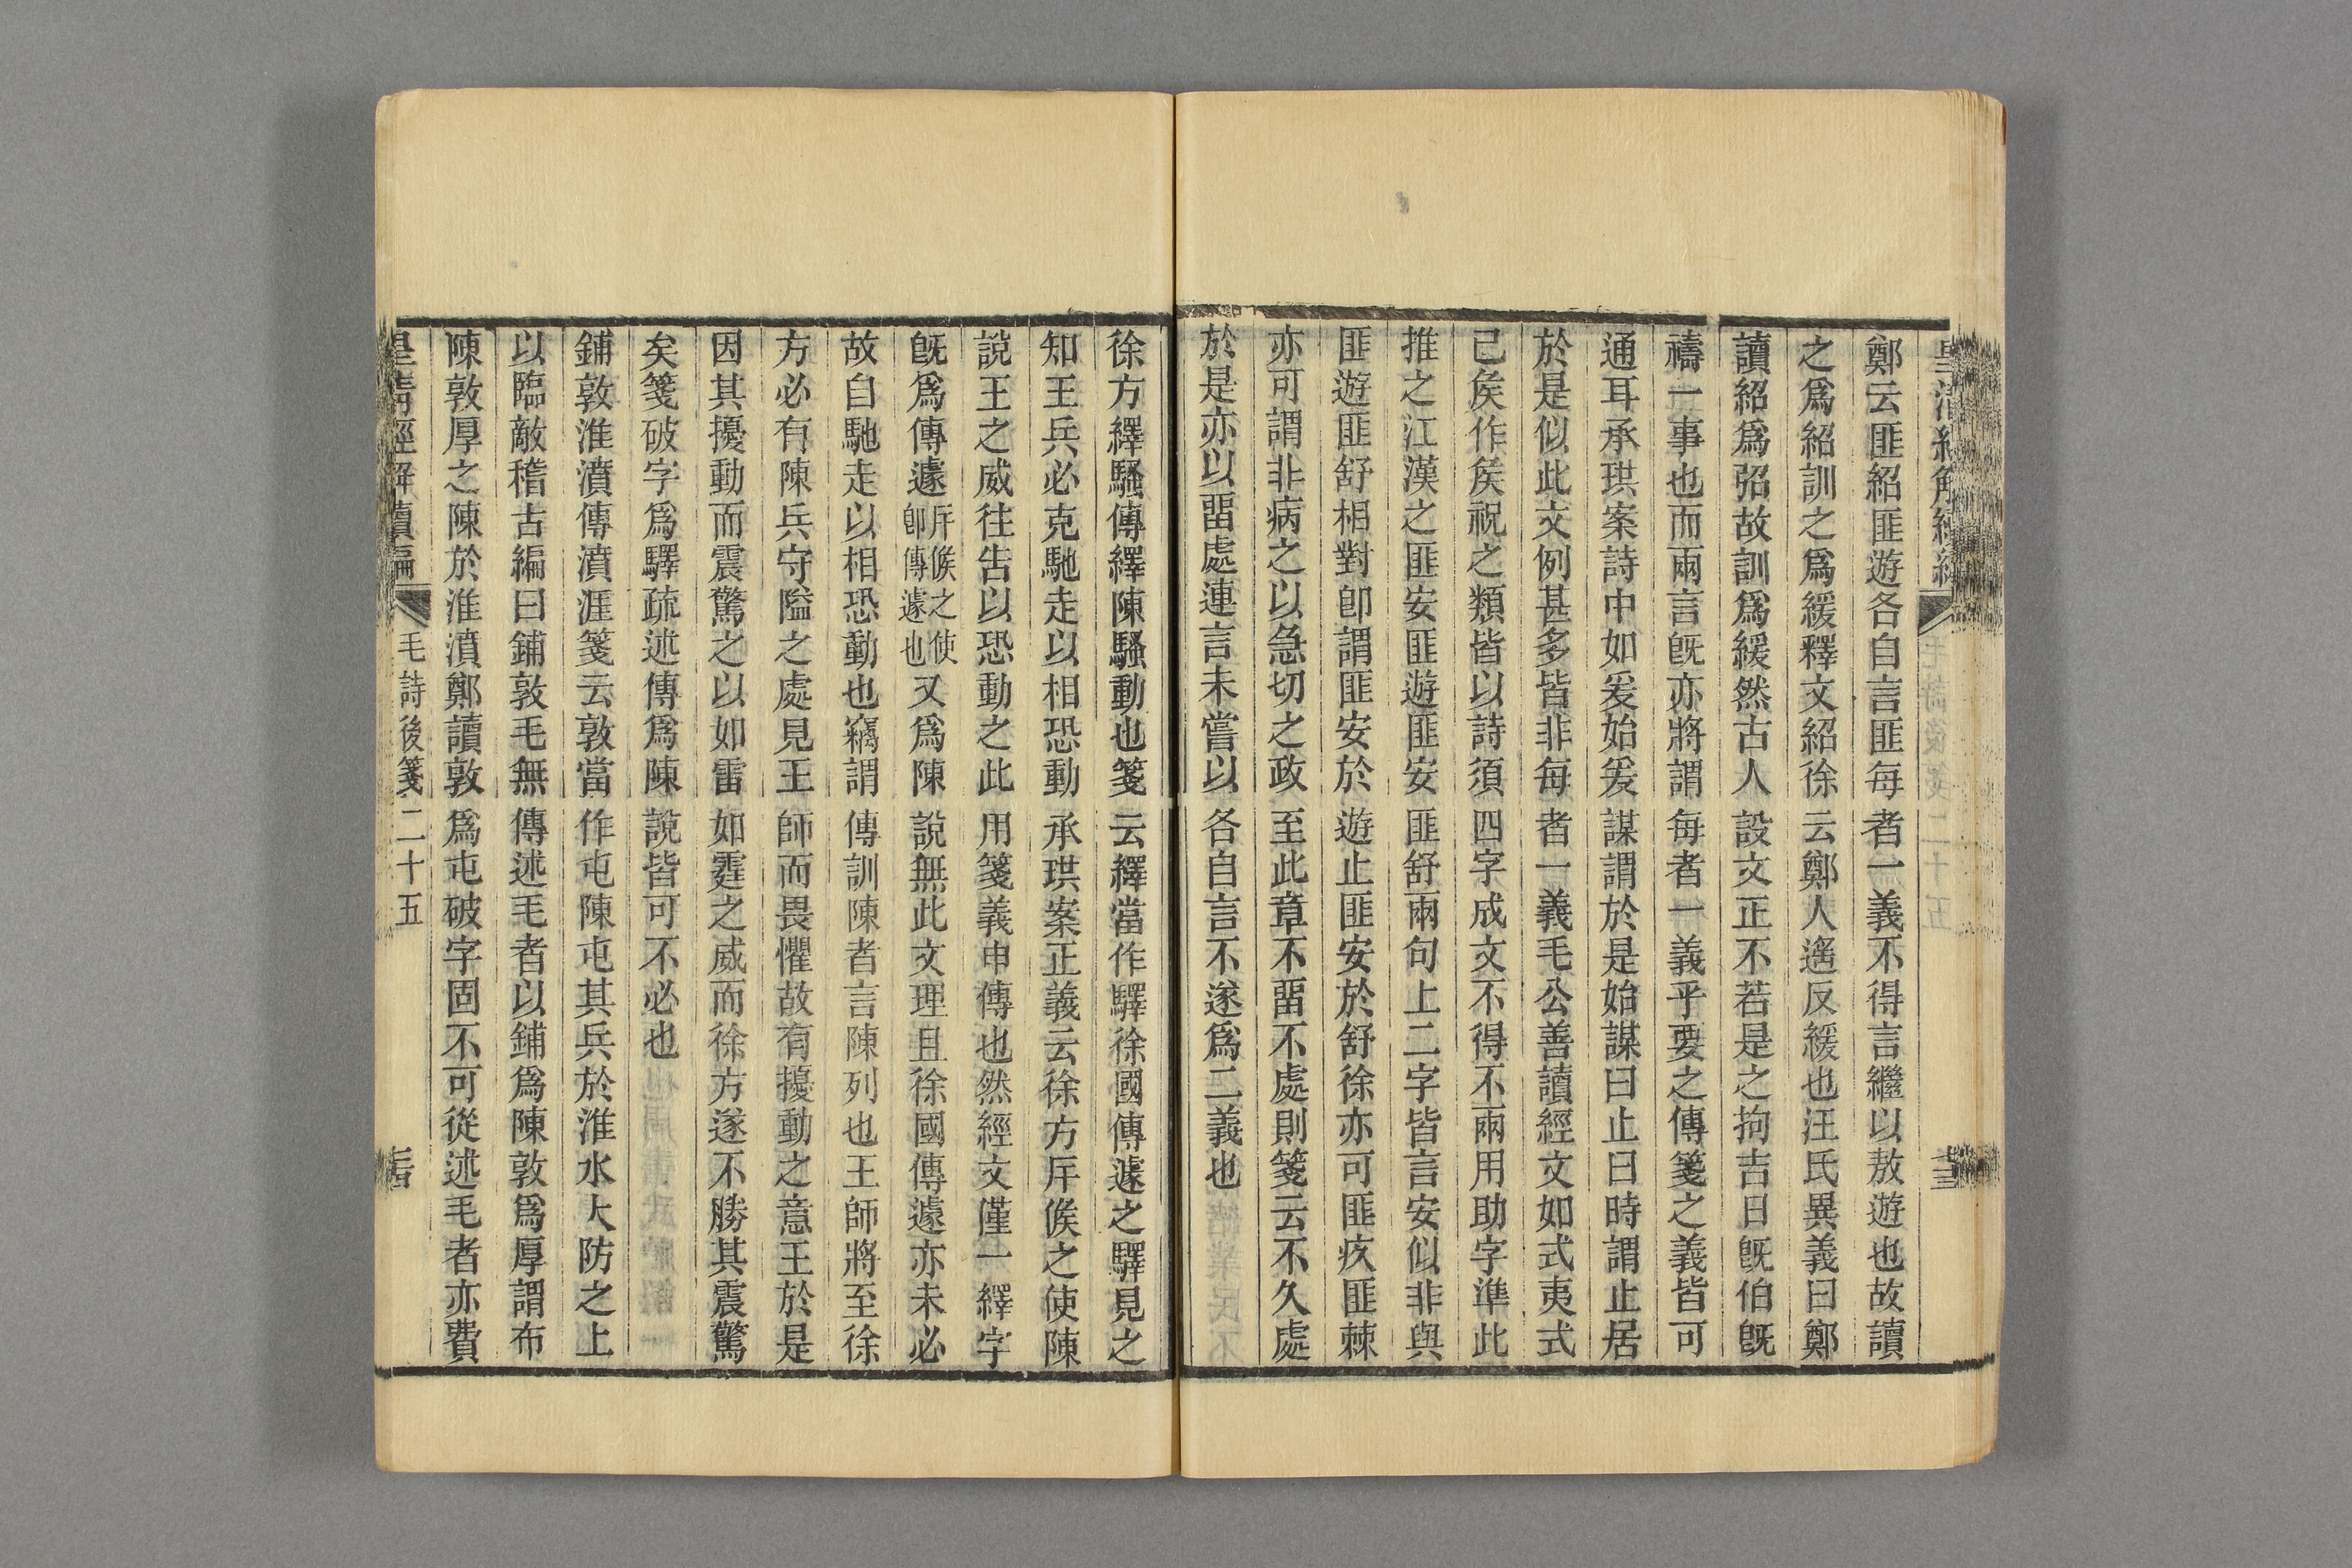 鄭云匪紹匪遊各自言匪每者一義不得言繼以敖遊也故讀
之爲紹訓之爲緩釋文紹徐云鄭人遥反緩也汪氏異義曰鄭
讀紹爲弨故訓爲緩然古人設文正不若是之拘吉日旣伯旣
禱一事也而兩言旣亦將謂每者一義乎要之傳箋之義皆可
通耳承珙案詩中如爰始爰謀謂於是始謀曰止曰時謂止居
於是似此文例甚多皆非每者一義毛公善讀經文如式夷式
已矦作矦祝之類皆以詩須四字成文不得不兩用助字準此
推之江漢之匪安匪遊匪安匪舒兩句上二字皆言安似非與
匪遊匪舒相對卽謂匪安於遊止匪安於舒徐亦可匪疚匪棘
亦可謂非病之以急切之政至此章不畱不處則箋云不久處
於是亦以畱處連言未嘗以各自言不遂爲二義也
徐方繹騷傳繹陳騷動也箋云繹當作驛徐國傳遽之驛見之
知王兵必克馳走以相恐動承珙案正義云徐方斥候之使陳
說王之威往告以恐動之此用箋義申傳也然經文僅一繹字
旣爲傳遽斥候之使卽傳遽也又爲陳說無此文理且徐國傳遽亦未必
故自馳走以相恐動也竊謂傳訓陳者言陳列也王師將至徐
方必有陳兵守隘之處見王師而畏懼故有擾動之意王於是
因其擾動而震驚之以如雷如霆之威而徐方遂不勝其震驚
矣箋破字爲驛疏述傳爲陳說皆可不必也
鋪敦淮濆傳濆涯箋云敦當作屯陳屯其兵於淮水大防之上
以臨敵稽古編曰鋪敦毛無傳述毛者以鋪爲陳敦爲厚謂布
陳敦厚之陳於淮濆鄭讀敦爲屯破字固不可從述毛者亦費
皇清經解續編 毛詩後箋二十五